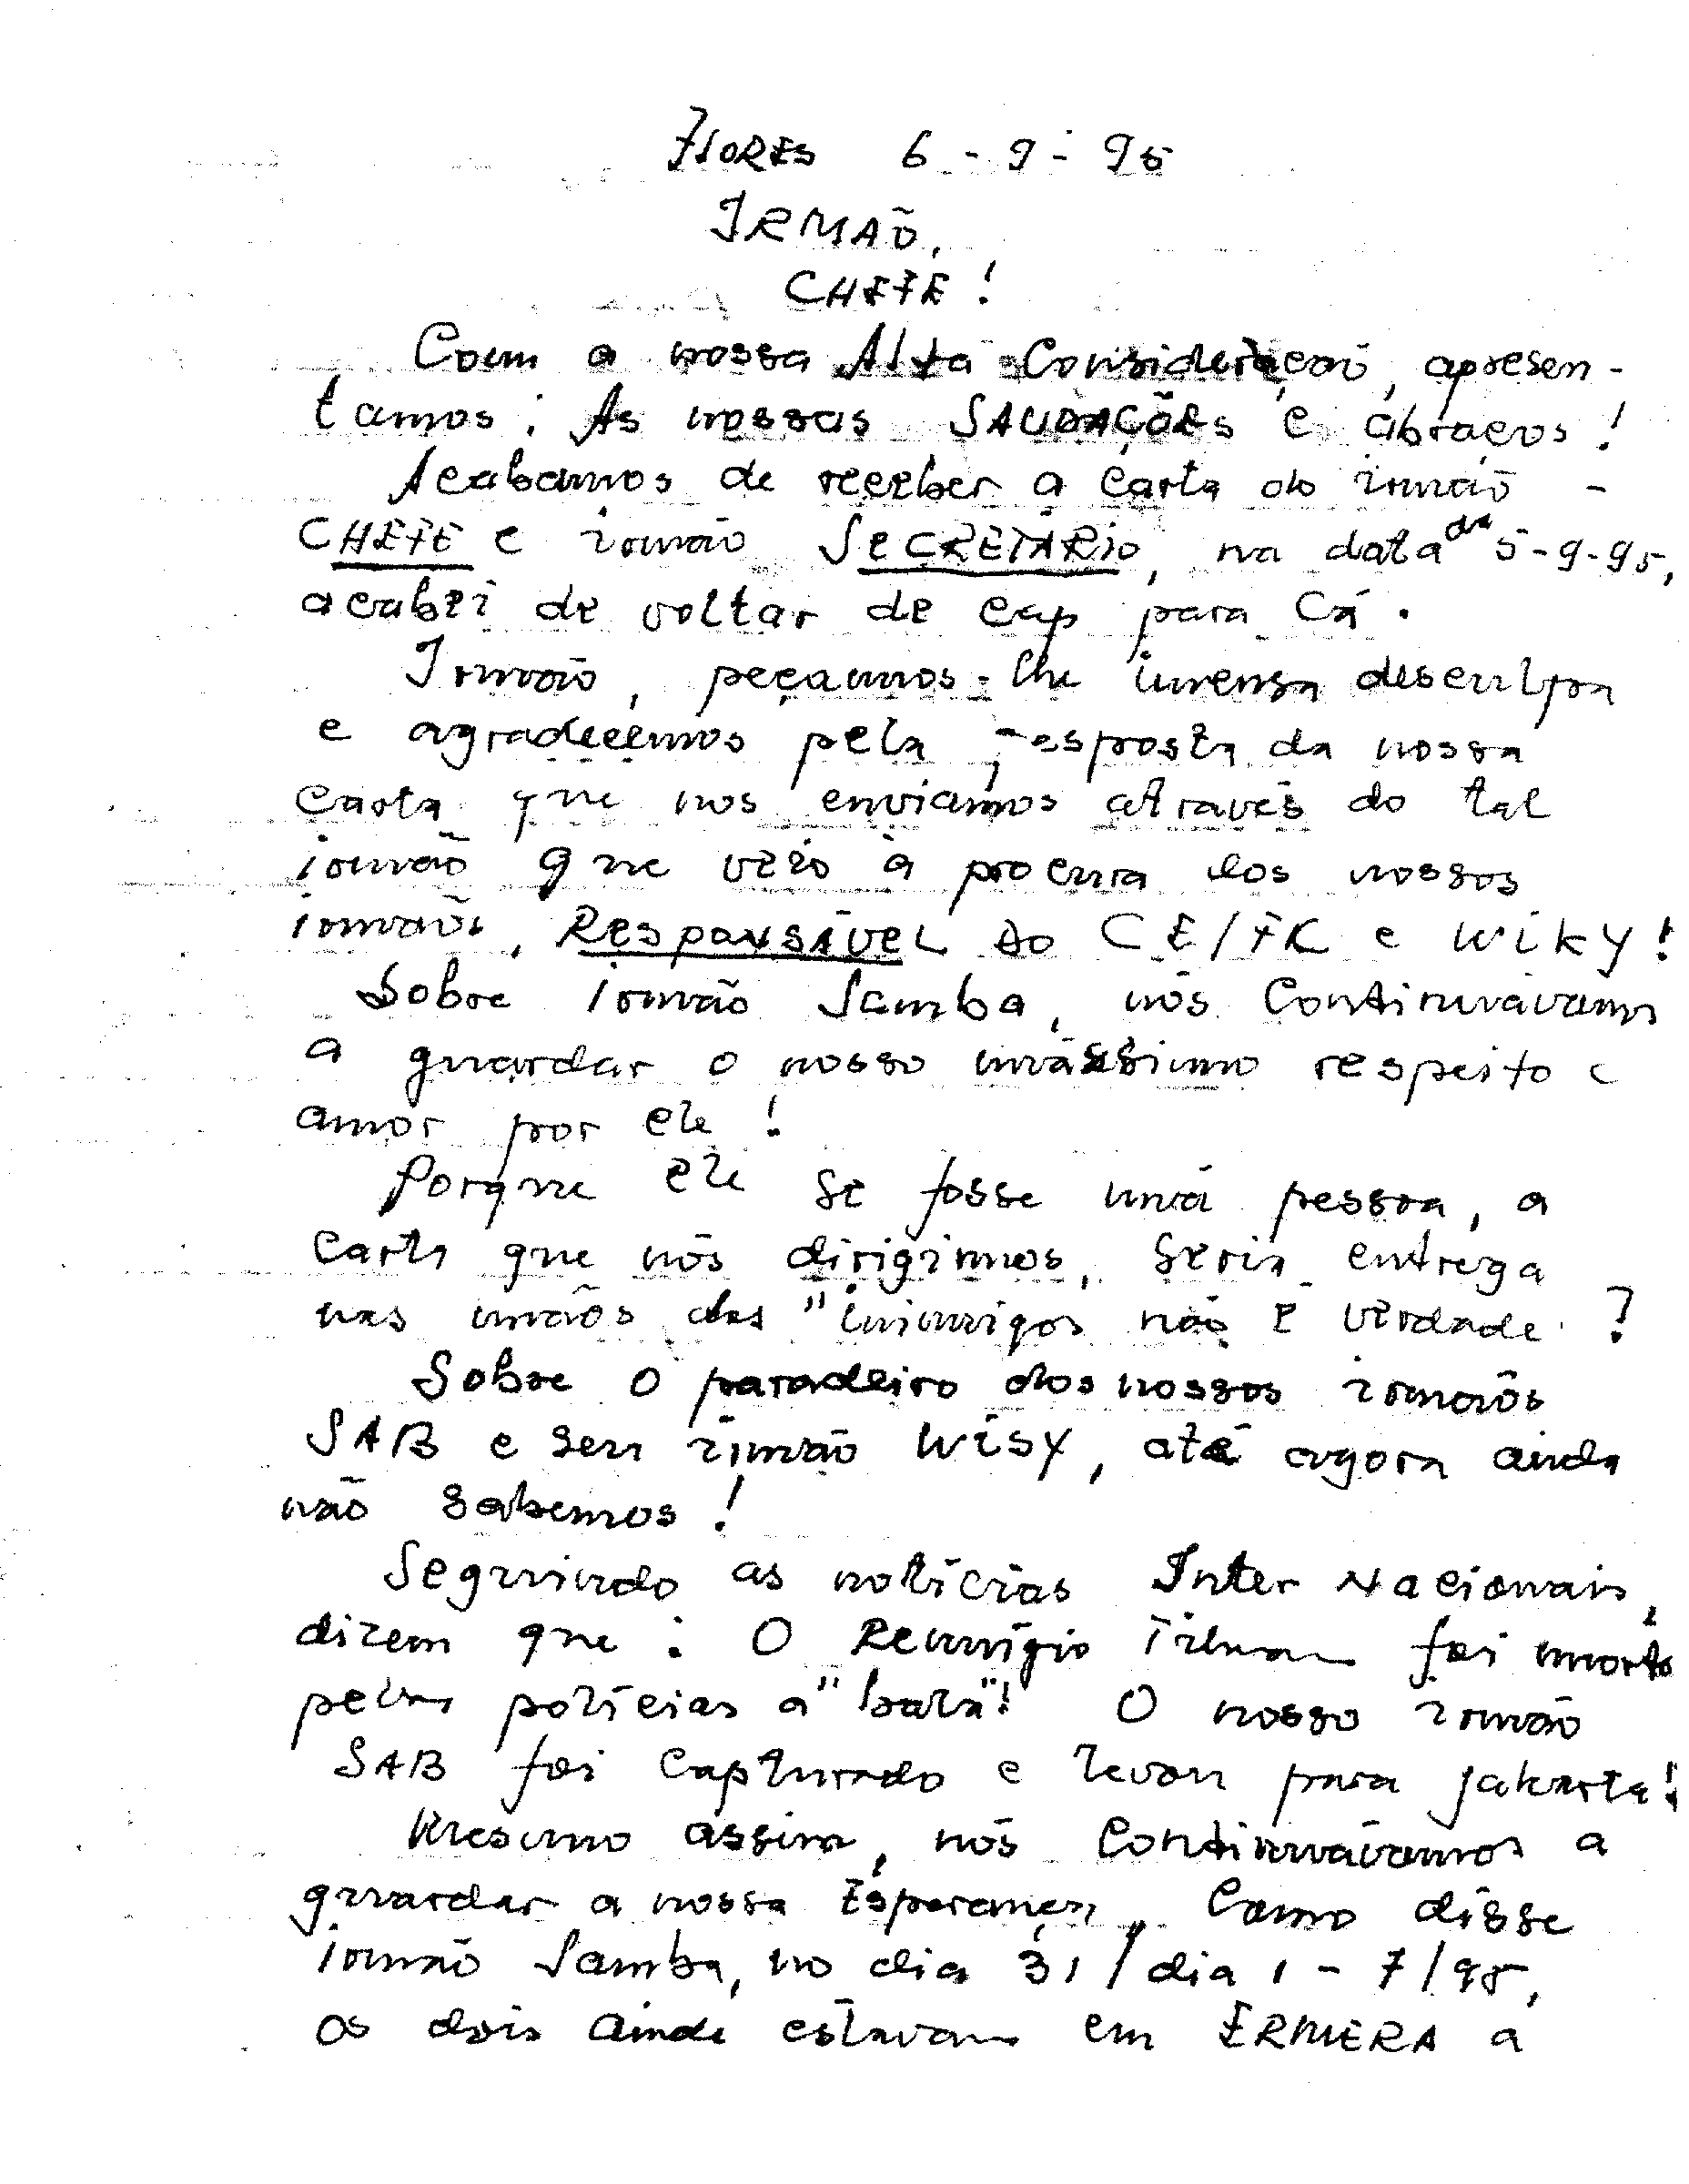 FLORES 6-9-95
IRMÃO,
CHEFE!
Com a nossa Alta Consideração, apresen-
tamos: As nossas SAUDAÇÕEs e abraços!
Acabamos de receber a carta do irmão -
CHEFE e irmão SeCRETÁRio, na data da 5-9-95,
acabei de voltar de cap para Cá.
Irmão, peçamos-lhe imensa desculpa
e agradecemos pela resposta da nossa
carta que nos enviamos através do tal
irmão que veio à procura dos nossos
irmãos, RespoNSÁVEL do CE/FK e WiKY!
Sobre irmão Samba, nós Continuávamos
a guardar o nosso mássimo respeito e
amor por ele!
Porque ele se fosse umá pessoa, a
carta que nós dirigimos, seria entrega
nas mãos dos "inimigos não é verdade?
Sobre o paradeiro dos nossos irmãos
SAB e seu irmão WiSY, até agora ainda
não sabemos!
Seguindo as notícias Inter Nacionais,
dizem que: O Remígio Tilman foi morto
pelas polícias a "bala"! O nosso irmão
SAB foi capturado e levou para jakarta!
Mesmo assim, nós Continuávamos a
guardar a nossa Esperança, Como disse
irmão Samba, no dia 31/dia 1-7/95,
os dois ainda estavam em ERMERA a